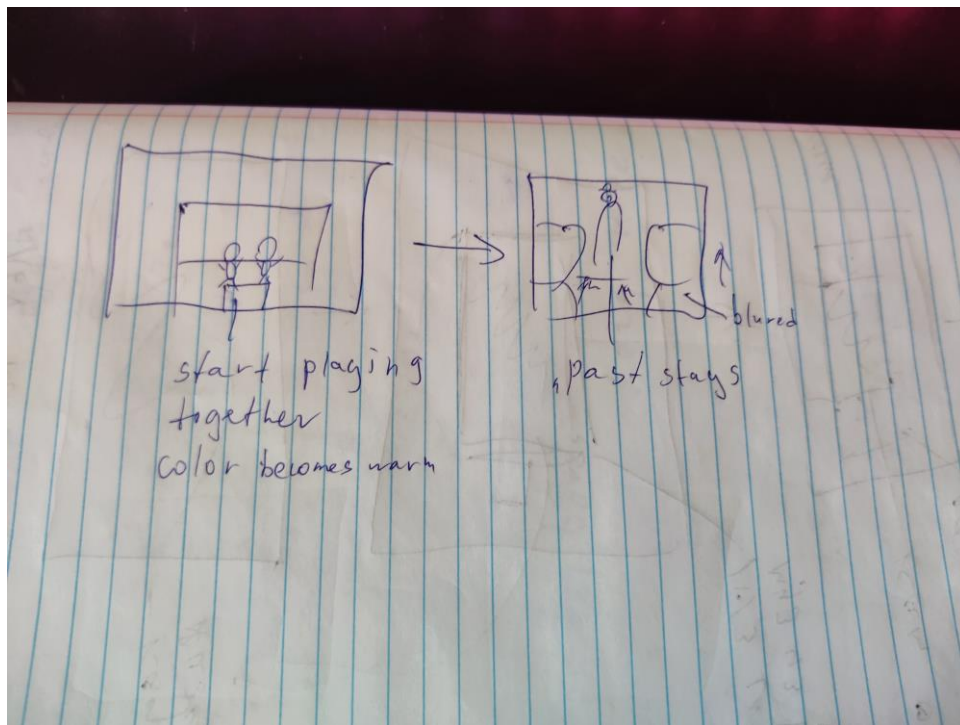 start playing
together
color becomes warm
blured
„past stays